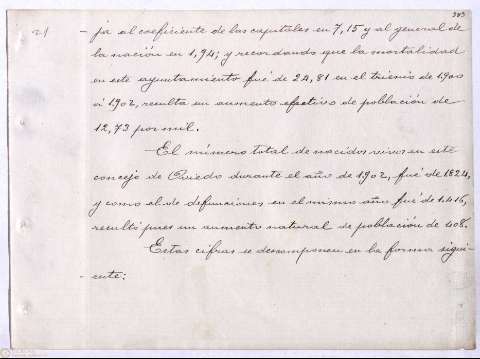 343
21
-ja al coeficiente de las capitales en 7,15 y al general de
la nación en 1,94; y recordando que la mortalidad
en este ayuntamiento fué de 24,81 en el trienio de 1900
á 1902, resulta un aumento efectivo de población de
12,73 por mil.
—El número total de nacidos vivos en este
concejo de Oviedo durante el año de 1902, fué de 1824,
y como el de defunciones en el mismo año fué de 1.416,
resultó pues un aumento natural de población de 408.
Estas cifras se descomponen en la forma sigui-
-ente: